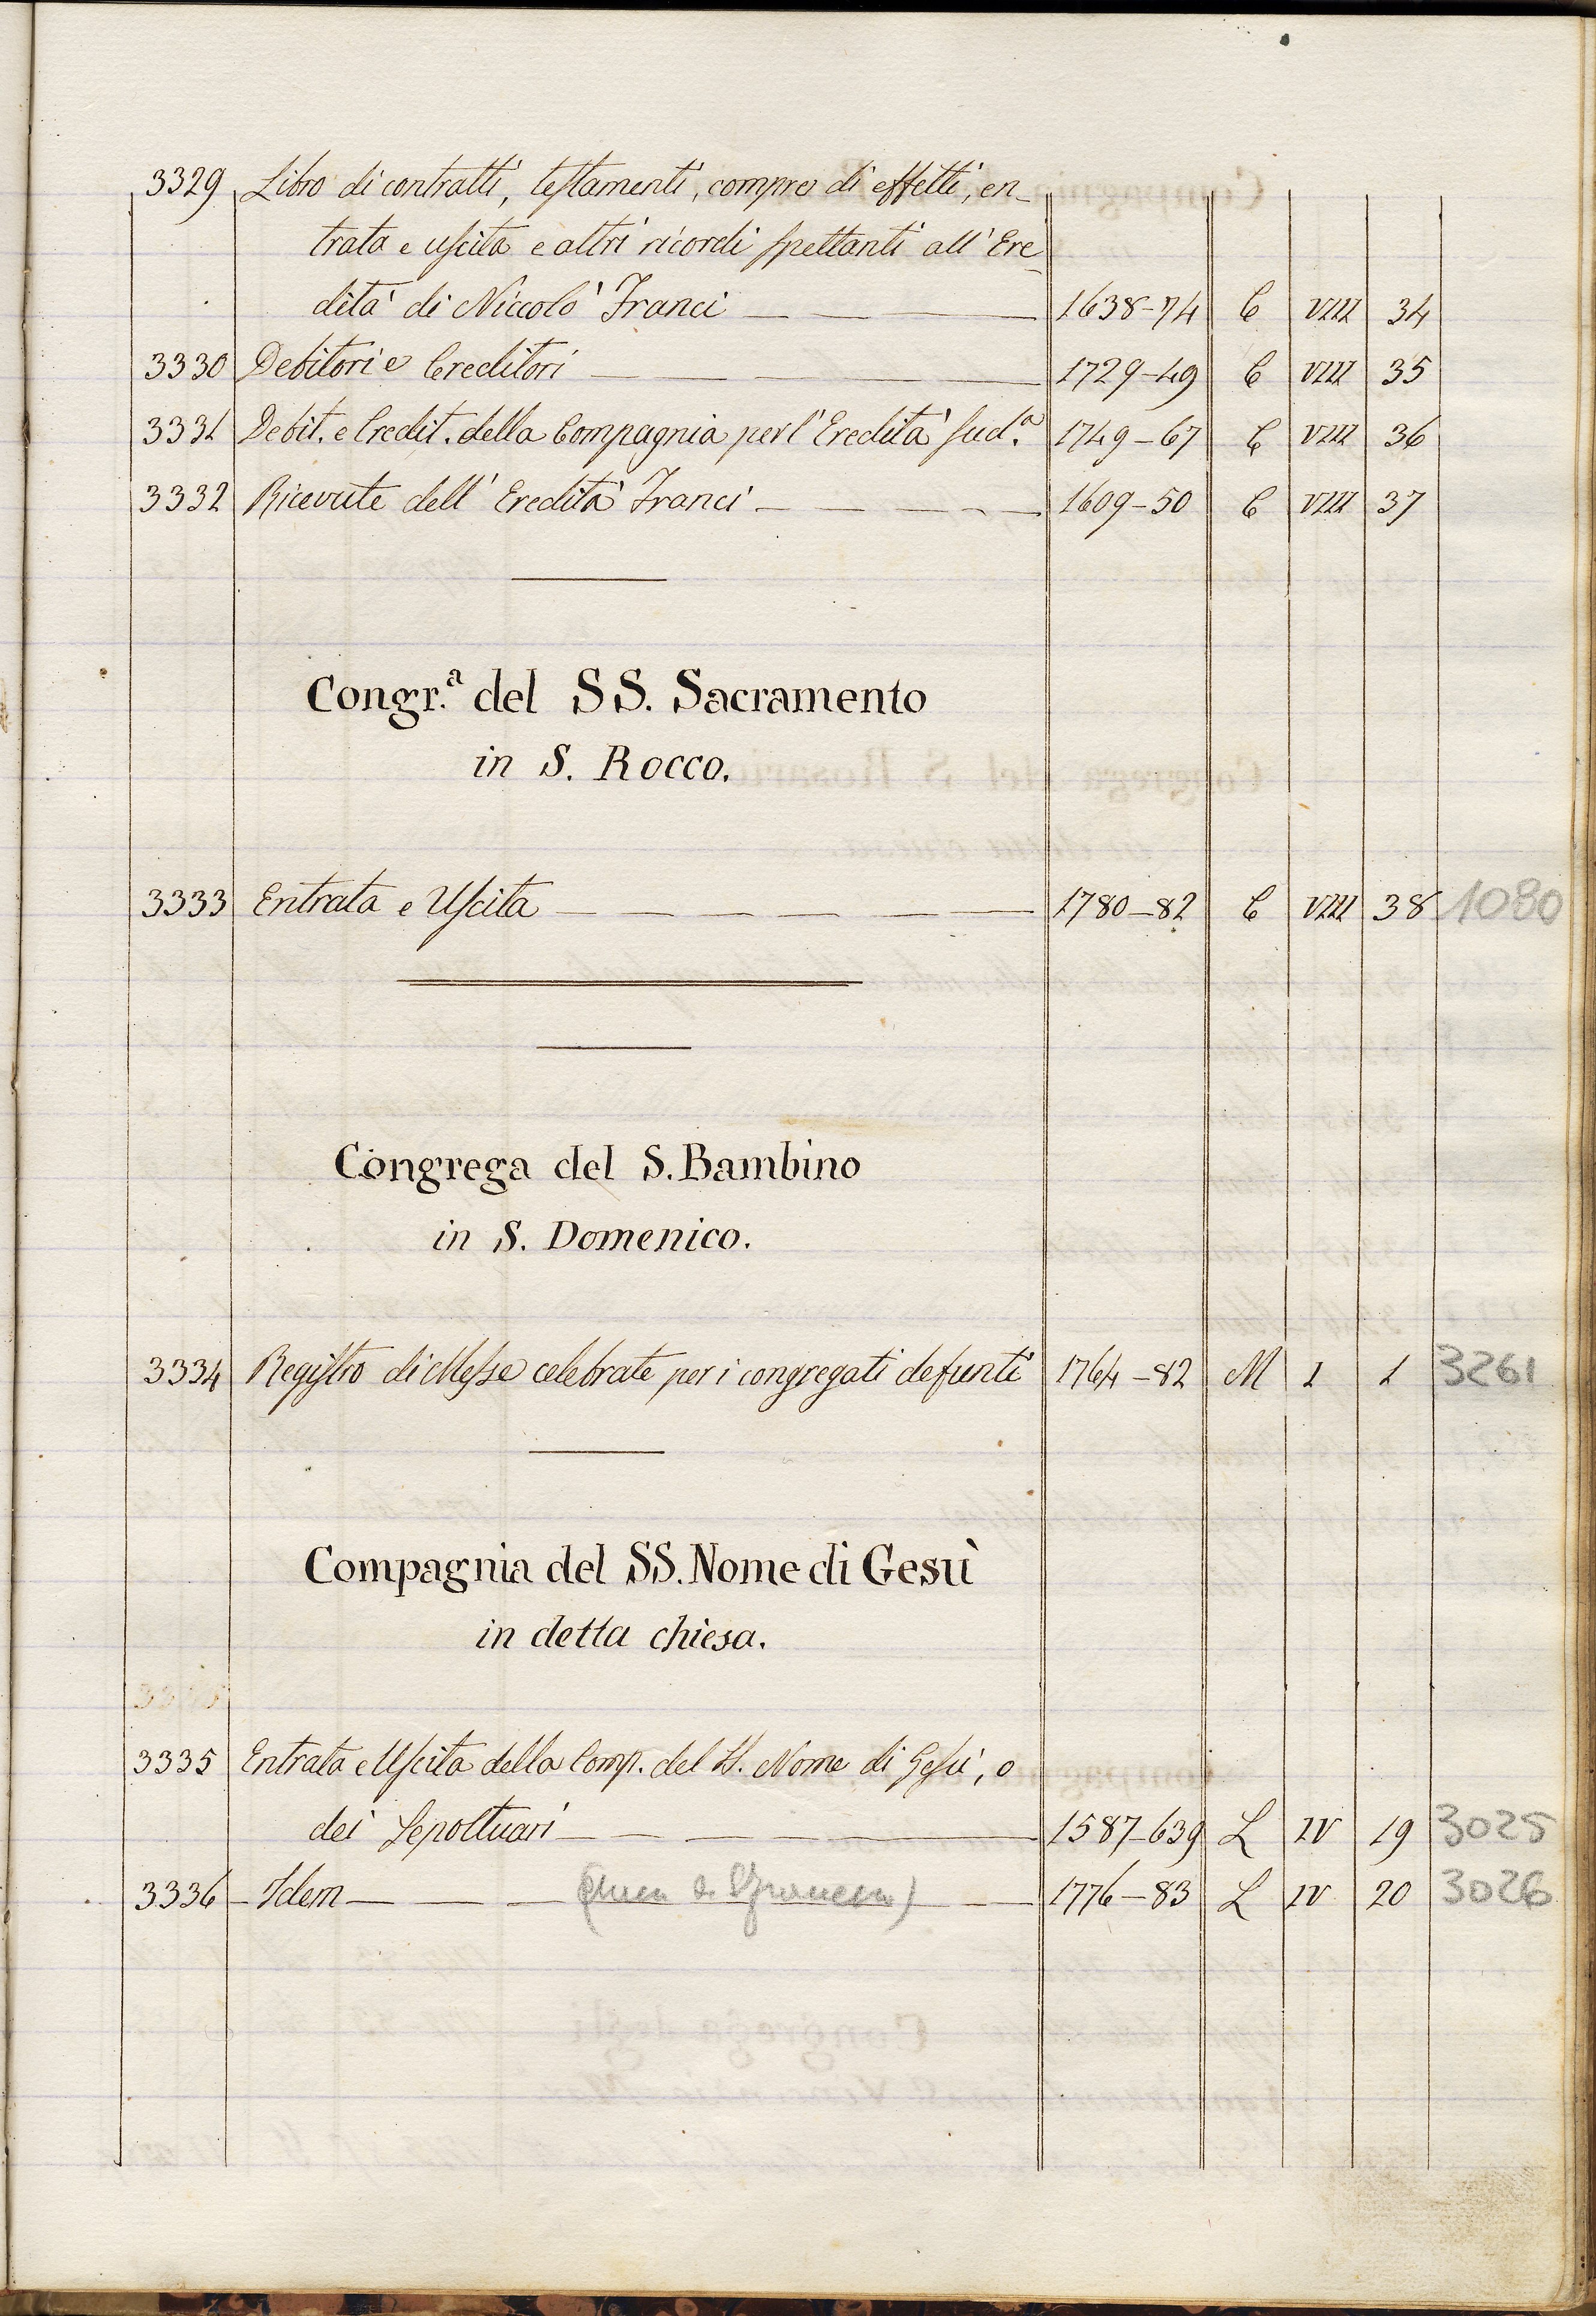 3329 Libro di contratti, testamenti, compre di effetti, en-
trata e uscita e altri ricordi spettanti all' Ere-
dità di Niccolò Franci 1638-74 C VIII 34
3330 Debitori e Creditori 1729-49 C VIII 35
3331 Debit. e Credit. della Compagnia per l' Eredità sud.ª 1749-67 C VIII 36
3332 Ricevute dell' Eredità Franci 1609-50 C VIII 37
Congr.ª del SS. Sacramento
in S. Rocco.
3333 Entrata e Uscita 1780-82 C VIII 38 1080
Congrega del S. Bambino
in S. Domenico.
3334 Registro di Messe celebrate per i congregati defunti 1764-82 M I 1 3261
Compagnia del SS. Nome di Gesù
in detta chiesa.
3335 Entrata e Uscita della Comp. del SS. Nome di Gesù, o
dei Sepoltuari 1587-639 L IV 19 3025
3336 Idem 1776-83 L IV 20 3026